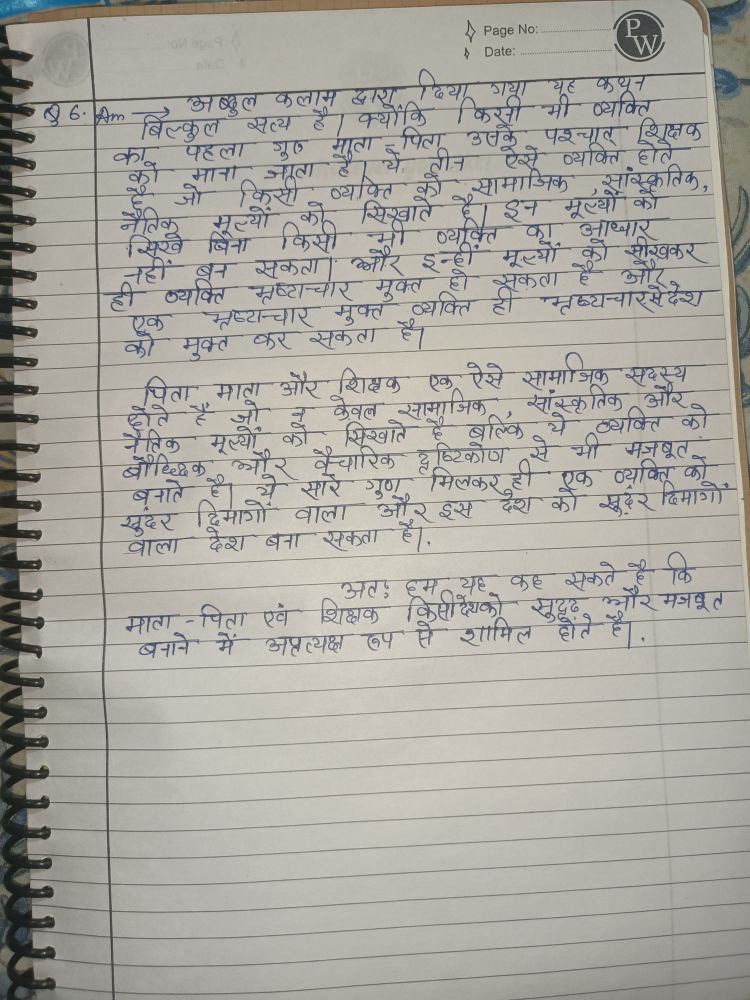 Page No:
Date:
PW
Q 6. Ans → अब्दुल कलाम द्वारा दिया गया यह कथन
बिल्कुल सत्य है। क्योंकि किसी भी व्यक्ति
का पहला गुरु माता - पिता उसके पश्चात् शिक्षक
को माना जाता है। ये तीन ऐसे व्यक्ति होते
है जो किसी व्यक्ति को सामाजिक, सांस्कृतिक,
नैतिक मूल्यों को सिखाते है। इन मूल्यों को
सिखे बिना किसी भी व्यक्ति का आधार
नहीं बन सकता। और इन्हीं मूल्यों को सीखकर
ही व्यक्ति भ्रष्टाचार मुक्त हो सकता है और
एक भ्रष्टाचार मुक्त व्यक्ति ही भ्रष्टाचार से देश
को मुक्त कर सकता है।
पिता माता और शिक्षक एक ऐसे सामाजिक सदस्य
होते हैं जो न केवल सामाजिक, सांस्कृतिक और
नैतिक मूल्यों को सिखाते है बल्कि ये व्यक्ति को
बौध्दिक और वैचारिक दृष्टिकोण से भी मजबूत
बनाते है। ये सारे गुण मिलकर ही एक व्यक्ति को
सुंदर दिमागों वाला और इस देश को सुदंर दिमागों
वाला देश बना सकता है।.
अतः हम यह कह सकते है कि
माता - पिता एवं शिक्षक किसी देश को सुदृढ़ और मजबूत
बनाने में अप्रत्यक्ष रूप से शामिल होते है।.